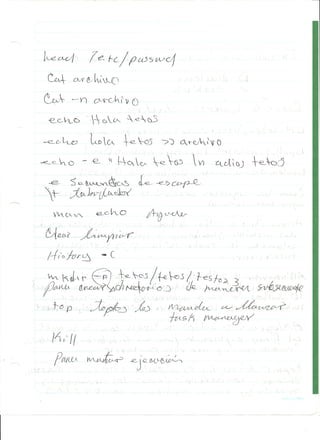 head /etc/passwd
Cat archivo
Cat -n archivo
echo Hola tetos
echo hola tetos >> archivo
echo -e "Hola tetos \n adios tetos
-e Secuencias de escape
\t tabulador
man echo Ayuda
Clear limpiar
History -c
mkdir -p tetos/tetos/tetos2
para crear directorios de manera
top los manda a llamar
task manager
Kill
Para matar ejecución